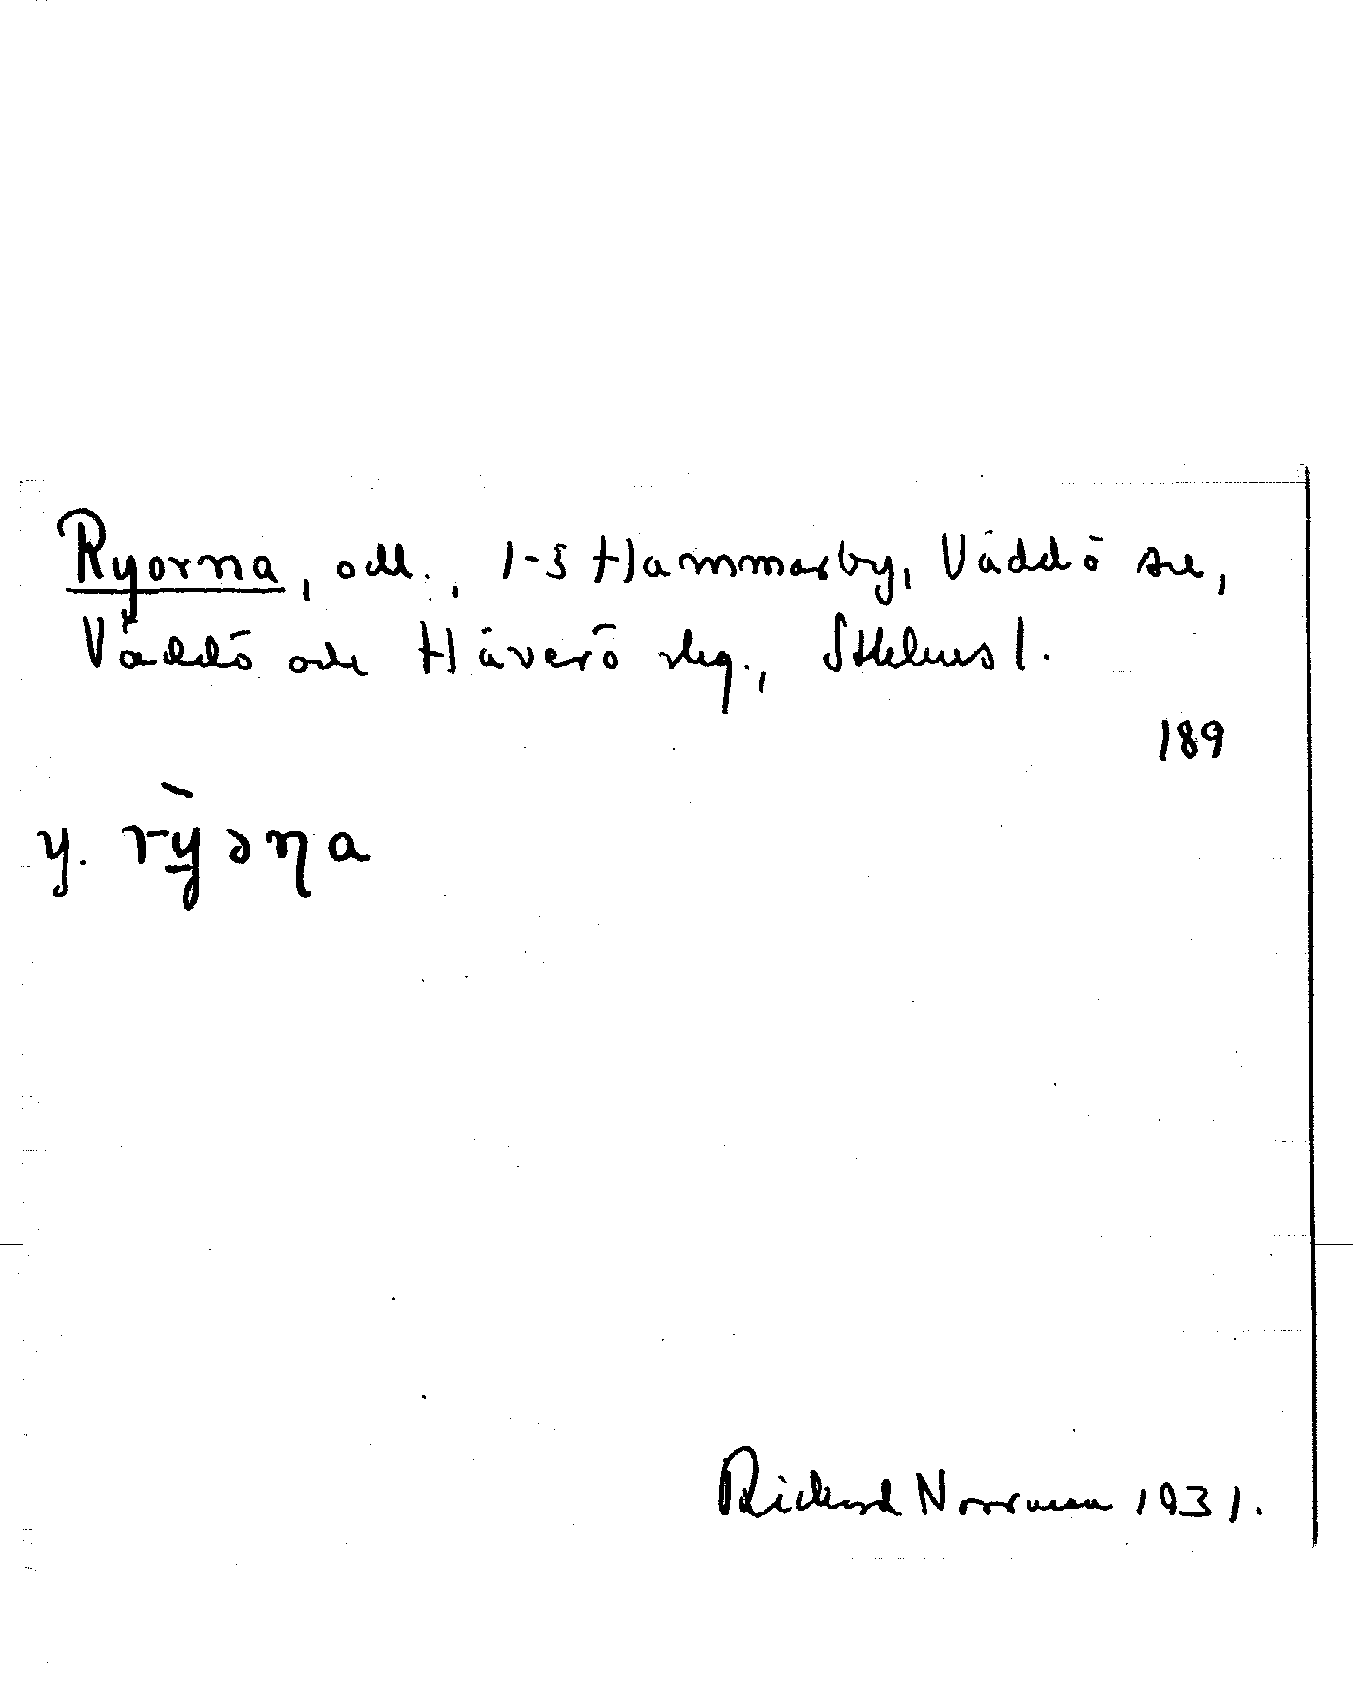 Ryorna, odl., 1-5 Hammarby, Väddö sn,
Väddö och Häverö skg., Sthlms l.
189
y. rỳəɳa
Rickard Norrman 1931.